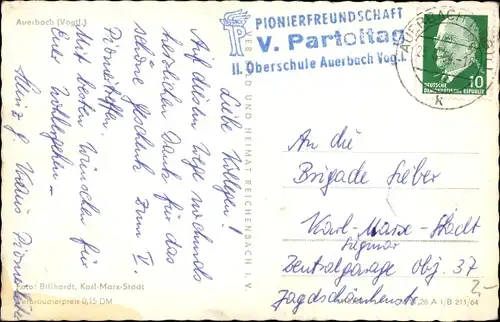 Auerbach (Vogtl.)
PIONIERFREUNDSCHAFT
V. Parteitag
II. Oberschule Auerbach Vogtl.
AUERBACH
k
10
DEUTSCHE
DEMOKRATISCHE REPUBLIK
VEB BILD UND HEIMAT REICHENBACH I. V.
Liebe Kollegen!
Auf diesem Wege nochmals
herzlichen Dank für das
schöne Geschenk zum V.
Pioniertreffen.
Mit besten Wünschen für
Euer Wohlergehen
Heinz J.
An die
Brigade Lieber
Karl-Marx-Stadt
Siegmar
Zentralgarage Obj. 37
Jagdschänkenstr.
2,-
Foto: Billhardt, Karl-Marx-Stadt
Verbraucherpreis 0,15 DM
26 A I/B 211/64